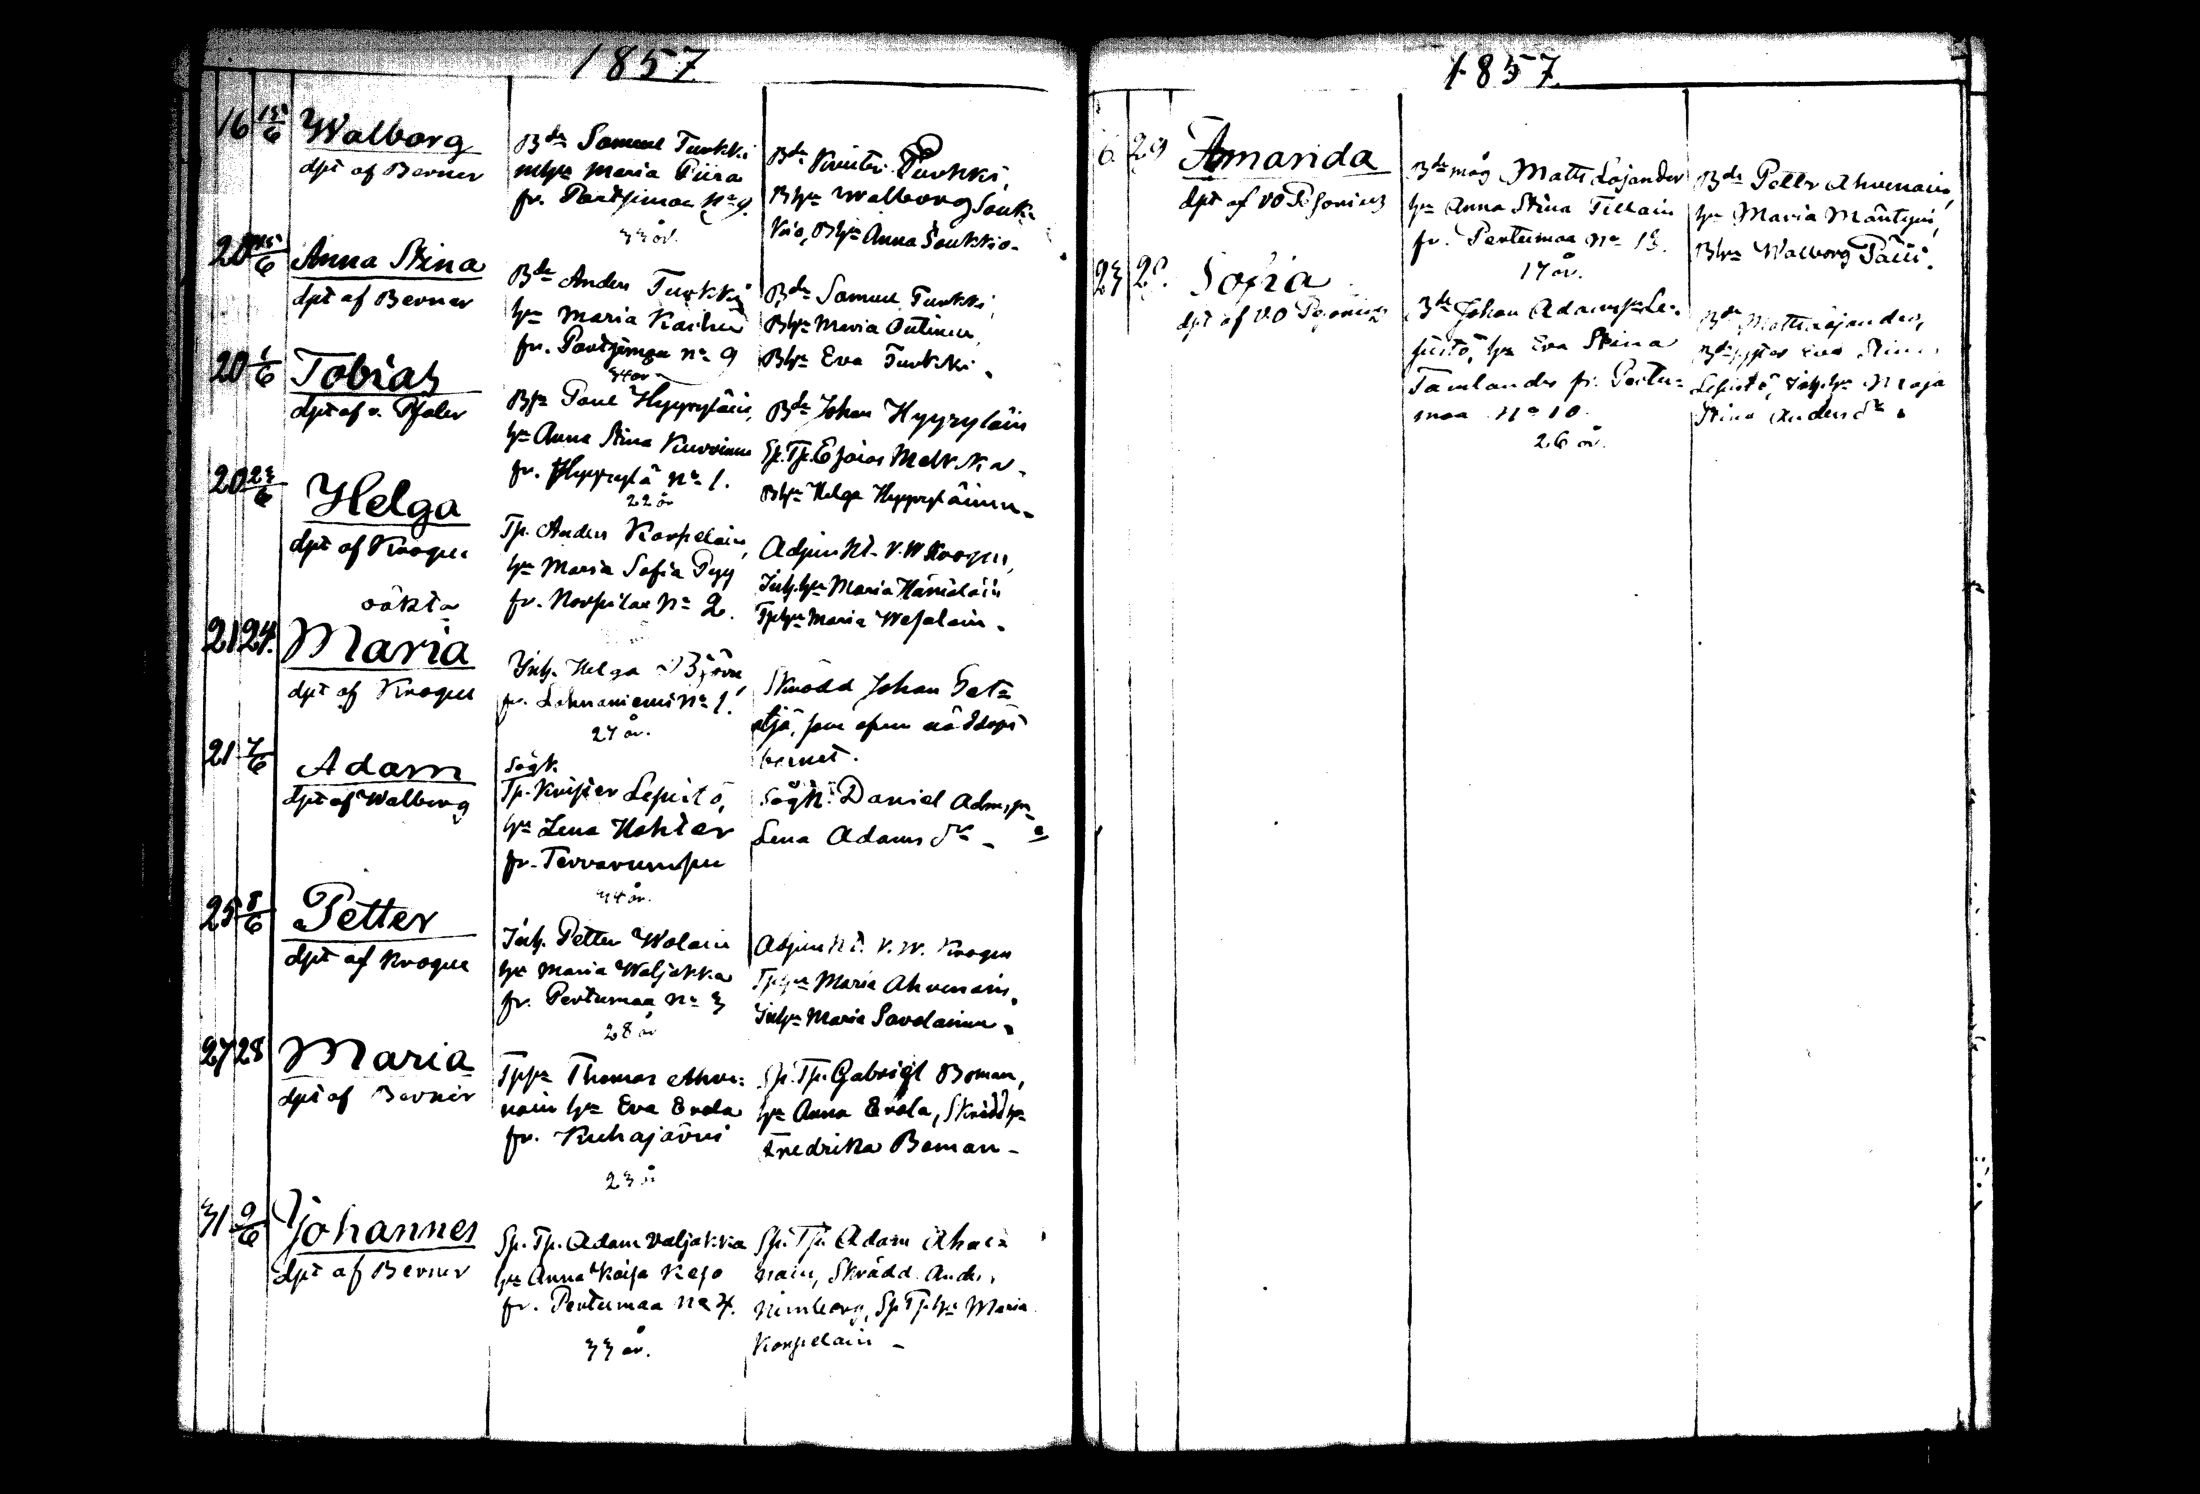 1857
16 15/6 Walborg
dpt af Berner
Bde Samuel Turkki
m hu Maria Piira
fr. Partsimaa No 9.
33 år.
Bde Turkki,
Bhu Walborg Souk=
kio, Bhu Anna Soukkio.
20 15/6 Anna Stina
dpt af Berner
Bde Anders Turkki
hu Maria
fr. Partsimaa No 9
34 år
Bde Samuel Turkki,
Bhu Maria Outinen,
Bhu Eva Turkki.
20 1/6 Tobias
dpt af v. Pfaler
Bsn Paul Hyyryläin,
hu Anna Stina Kuvvinen
fr. Hyyrylä No 1.
22 år
Bde Johan Hyyryläin
Sp. Tp. Esaias
Bhu Helga Hyyryläinen.
20 23/6 Helga
dpt af Krogen
Tp. Anders Korpelain,
hu Maria Sofia Pyy
fr. Norpilae No 2.
Adjunkt. V. W. Krogen,
Inh. hu Maria Hämäläin
Tphu Maria Wesalain.
oäkta
21 24. Maria
dpt af Krogen
Inh. Helga Björn,
fr. Lahnaniemi No 1.
27 år.
Skrädd Johan
som äfven nöddöpt
barnet.
21 7/6 Adam
dpt af Walberg
Sågk.
Tp. Krister Lepistö,
hu Lena Hokter
fr. Tervarumpu
34 år.
Sågk. Daniel Adamsn
Lena Adams dr
25 8/6 Petter
dpt af Krogen
Inh. Petter Wolain
hu Maria Waljakka
fr. Pertumaa No 3
28 år
Adjunkt. V. W. Krogen
Tphu Maria Ahvenain,
Inhu Maria Savolainen.
27 28 Maria
dpt af Berner
Tpsn Thomas Ahve=
nain hu Eva Erola
fr. Kuhajärvi
23 år
Sp. Tp. Gabriel Boman,
hu Anna Erola, Skrädd hu
Fredrika Boman
31 9/6 Johannes
dpt af Berner
Sp. Tp. Adam Valjakka
hu Anna Kaisa Keso
fr. Pertumaa No 4.
33 år.
Sp. Tp. Adam Ahve=
nain, Skrädd. Ands.
Nimberg, Sp Tp hu Maria
Korpelain
1857.
6. 29 Amanda
dpt af V O Pesonius
Bde måg Matts Lojander
hu Anna Stina Tillain
fr. Pertumaa No 13.
17 år.
Bde Petter Ahvenain,
hu Maria Mäntynen,
Bhu Walborg
23 29. Sofia
dpt af V O Pesonius
Bde Johan Adamsn Le=
pistö, hu Eva Stina
Tamlander fr. Pertu=
maa No 10.
26 år.
Bde Matts Lojander,
Bde syster Eva Stina
Lepistö, Inh hu Maja
Stina Anders dr.